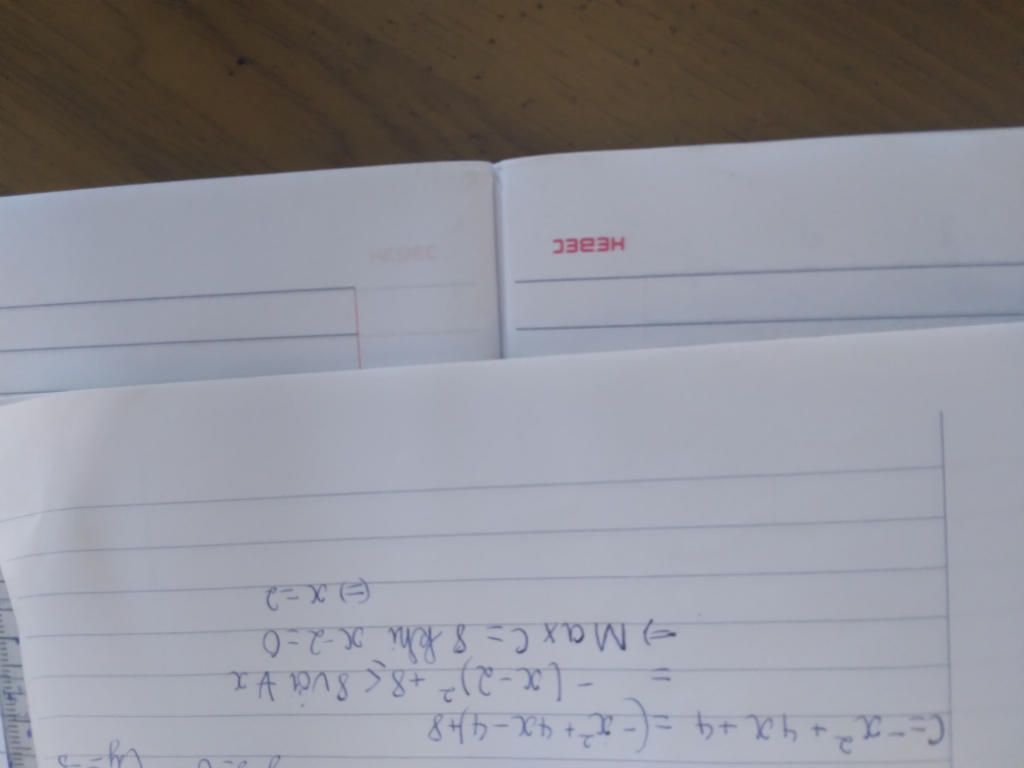 C=-x²+4x+4 = (-x²+4x-4)+8
= -(x-2)²+8 ≤ 8 với ∀ x
=> Max C = 8 khi x-2=0
<=> x=2
HEBEC